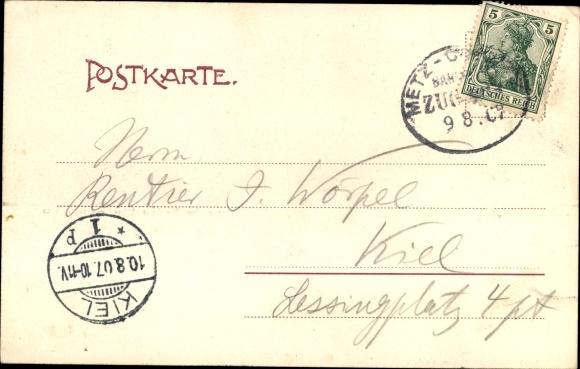 POSTKARTE.
5 5
DEUTSCHES REICH
METZ-
BAH
ZUG
9 8.07
Herrn
Rentier J. Wörpel
Kiel
Lessingplatz 4 pt
1 P
10.8.07.10-11V.
KIEL